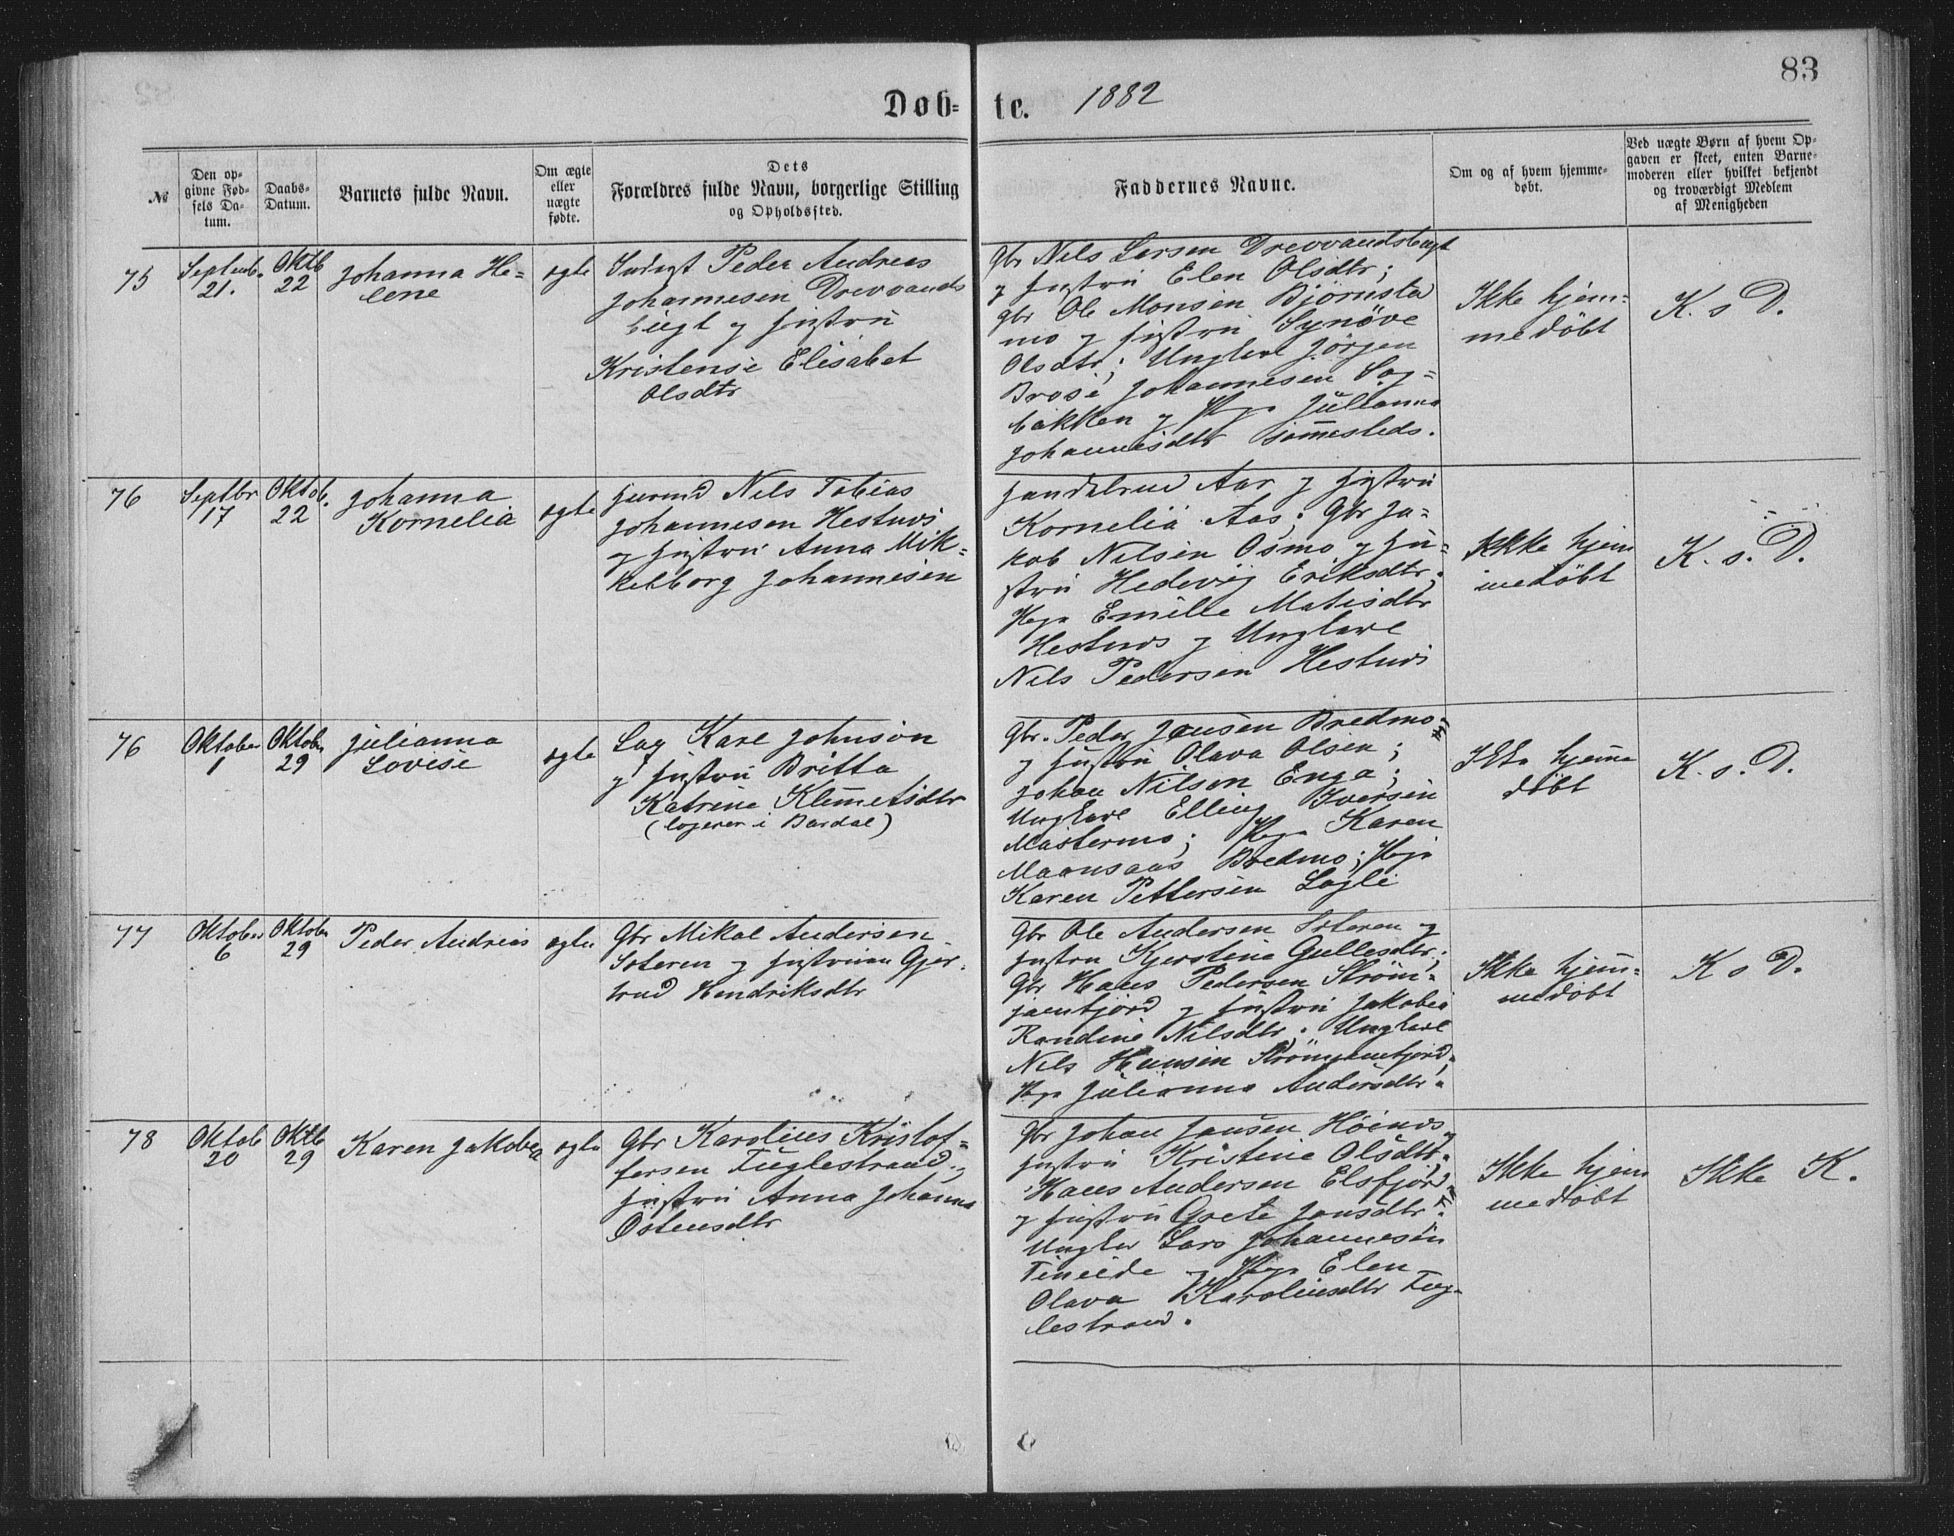 83
Døb- te. 1882
№
Den op-
givne Fød-
sels Da-
tum.
Daabs-
Datum.
Barnets fulde Navn.
Om ægte
eller
uægte
fødte.
Dets
Forældres fulde Navn, borgerlige Stilling
og Opholdssted.
Faddernes Navne.
Om og af hvem hjemme-
døbt.
Ved uægte Børn af hvem Op-
gaven er skeet, enten Barne-
moderen eller hvilket bekjendt
og troværdigt Medlem
af Menigheden
75
Septemb.
21.
Oktb
22
Johanna He-
lene
ægte
Peder Andreas
Johannesen Drevvands
bugt og Hustru
Kristense Elisabet
Olsdtr
Gbr Nels Larsen Drevvandsbugt
og Hustru Elen Olsdtr;
Gbr Ole Monsen Bjørnsta
mo og Hustru Synøve
Olsdtr; Ungkarl Jørgen
Brose Johannesen Sag-
bakken og Pige Julianna
Johannesdtr sammesteds.
Ikke hjem-
medøbt
K. s D.
76
Septbr
17
Oktob.
22
Johanna
Kornelia
ægte
Huusmd Nels Tobias
Johannesen Hestnes
og Hustru Anna Mik-
kelborg Johannesen
Handelsmd Aas og Hustru
Kornelia Aas; Gbr Ja-
kob Nilsen Osmo og Hu-
stru Hedevig Eriksdtr;
Pige Emilie Matisdtr
Hestnes og Ungkarl
Nels Pedersen Hestnes
Ikke hjem
medøbt
K. s. D.
76
Oktober
1
Oktober
29
Julianna
Lovise
ægte
Lag Karl Johnson
og Hustru Britta
Katrine Klemetsdtr
(logerer i Bardal)
Gbr. Peder Jensen Bredmo-
og Hustru Olava Olsen;
Johan Nilsen Enga;
Ungkarl Elling Iversen
Mastermo; Pige Karen
Maansaas Bredmo; Pige
Karen Pettersen Lagli
Ikke hjemme
døbt
K. s. D.
77
Oktober
6
Oktober
29
Peder Andreas
ægte
Gbr Mikal Andersen
Sæteren og Hustruen Gjer-
trud Hendriksdtr
Gbr Ole Andersen Sæteren og
Hustru Kjerstina Gullesdtr;
Gbr Hans Pedersen Strøm-
Hustru Jakobia
Randine Nilsdtr; Ungkarl
Nels Hansen
Pige Julianna Andersdtr.
Ikke hjem-
medøbt
K s D.
78
Oktob
20
Oktb
29
Karen Jakobea
ægte
Gbr Karolius Kristof-
fersen Fuglestrand og
Hustru Anna Johanna
Østensdtr
Gbr Johan Jansen Høines og
Hustru Kristine Olsdtr;
Hans Andersen Elsfjord
og Hustru Grete Jonsdtr;
Ungkar Lars Johannesen
og Pige Elen
Olava Karoliusdtr Fug-
lestrand.
Ikke hjem
medøbt
Ikke K.